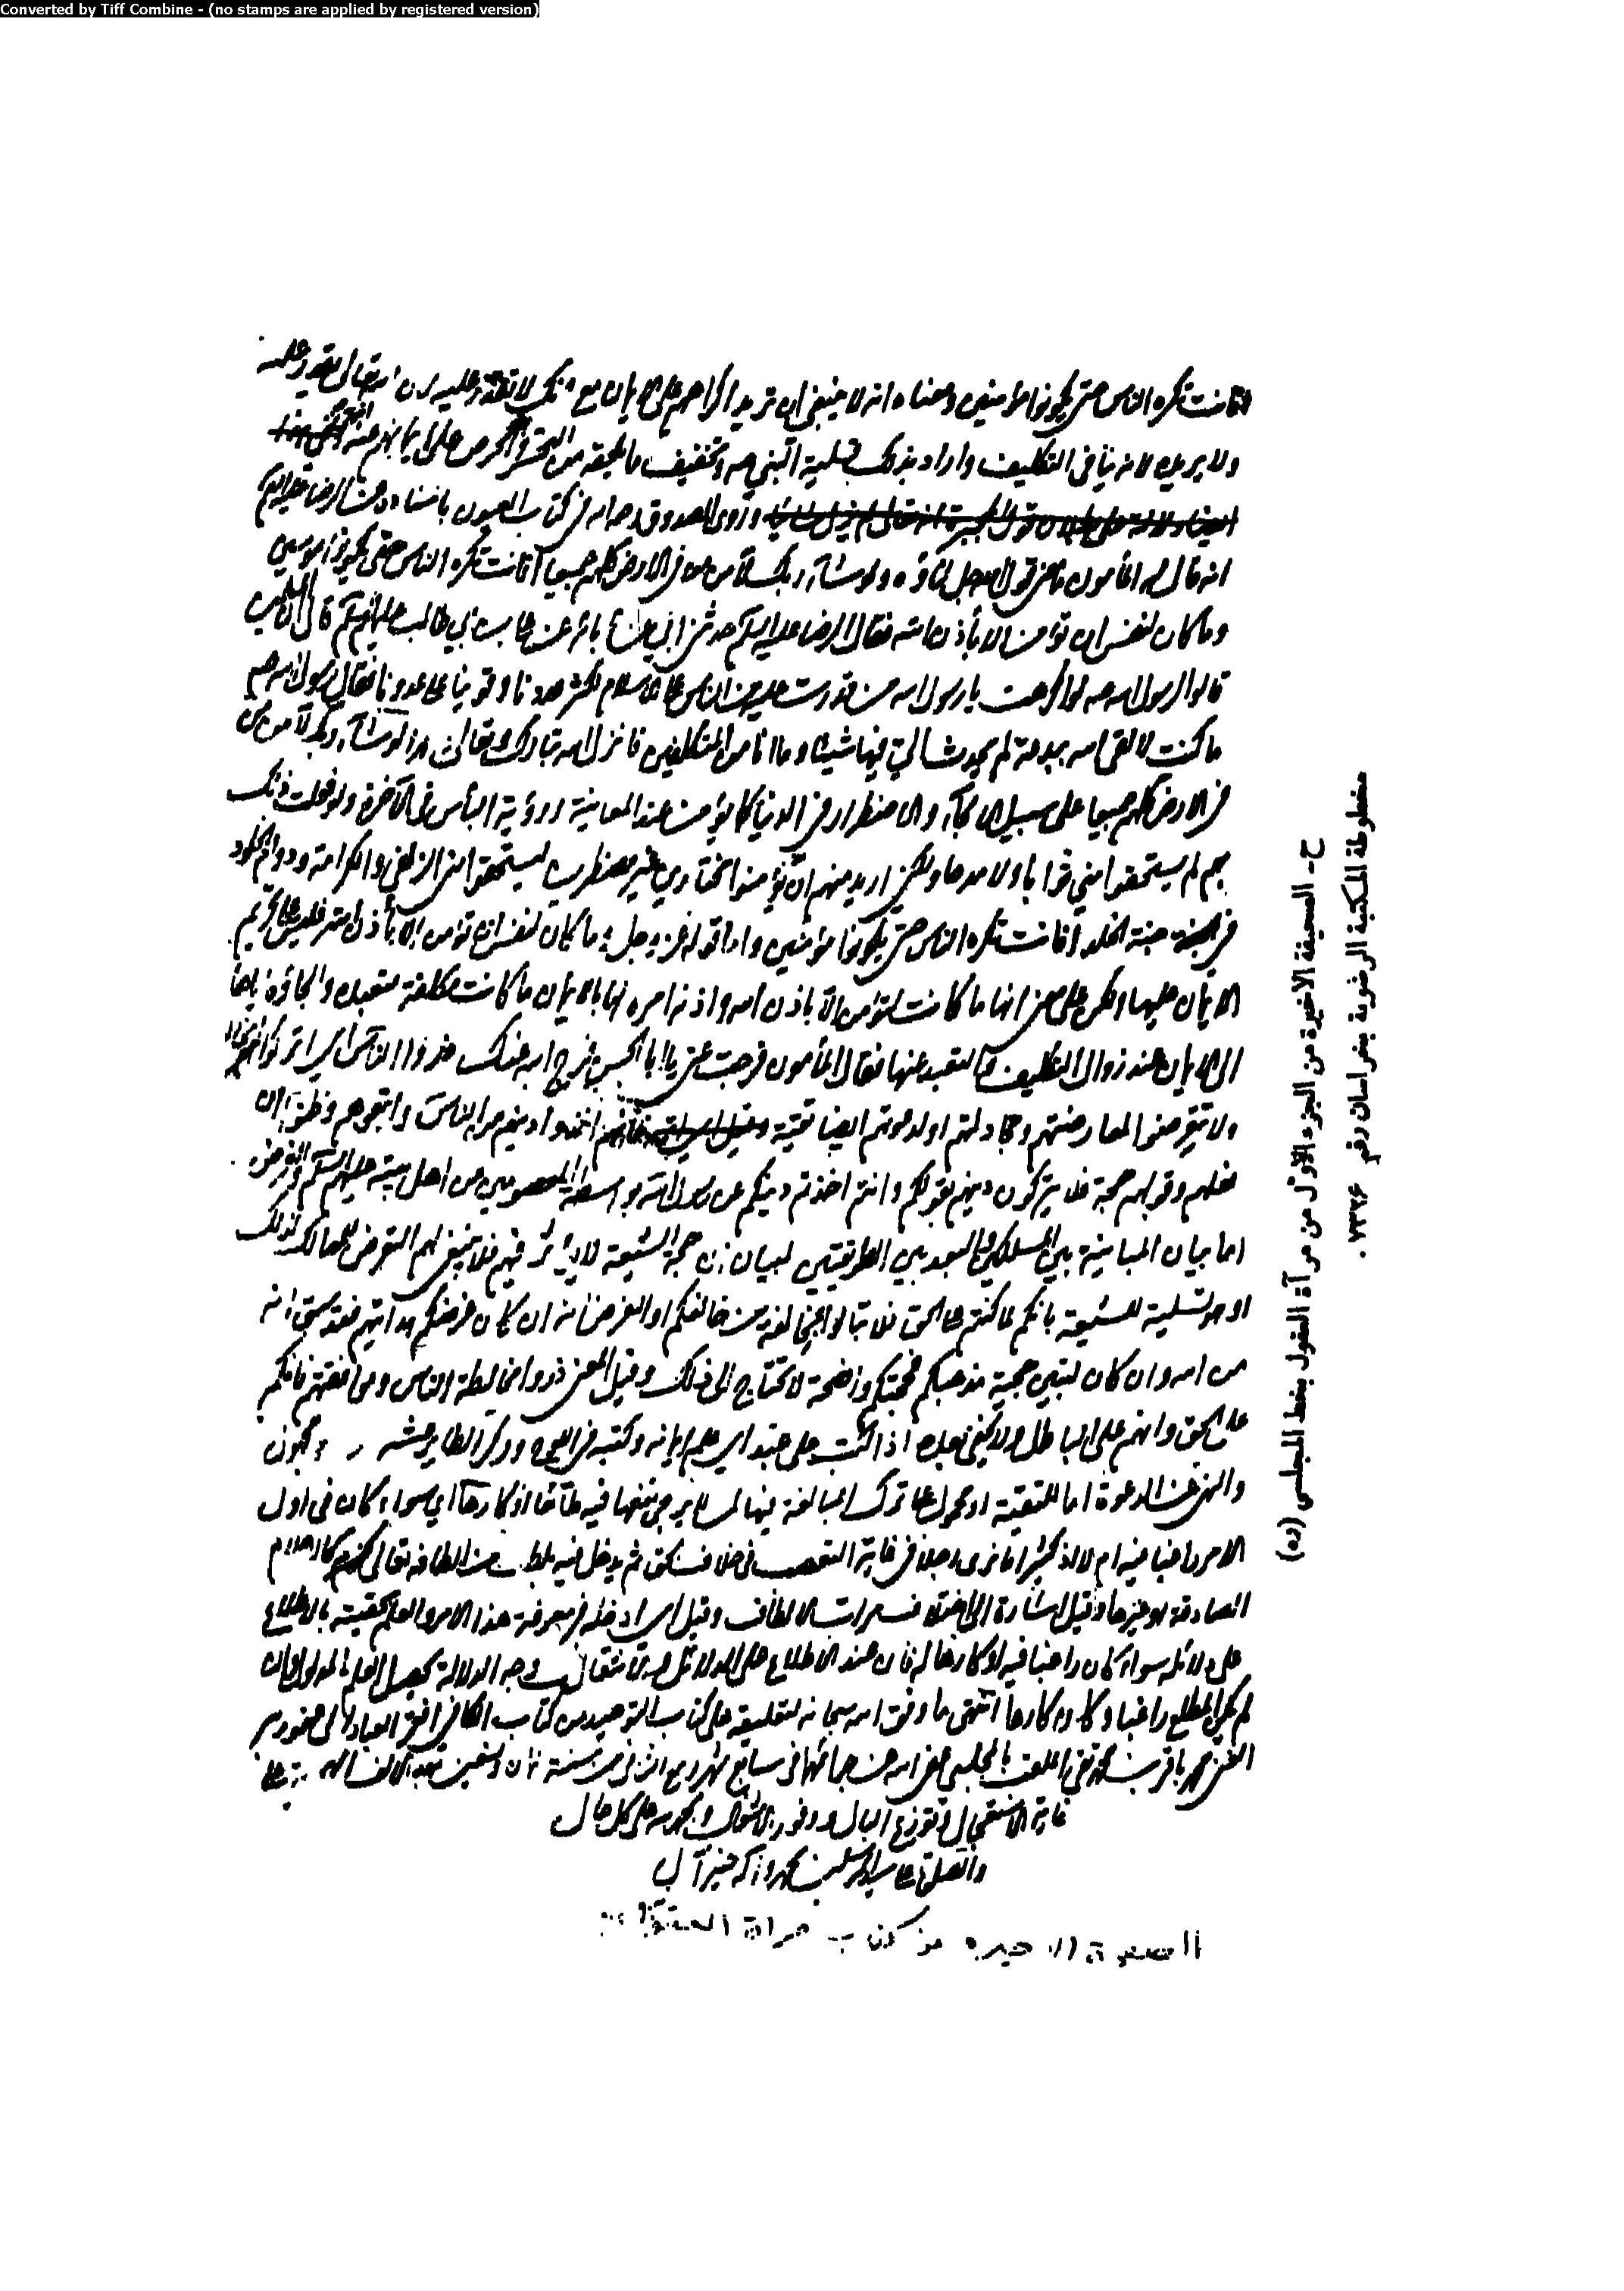 Converted by Tiff Combine - (no stamps are applied by registered version)
افانت تكره الناس حتى يكونوا مؤمنين ومعناه انه لا ينبغي ان تريد اكراههم على الايمان مع انك لا تقدر عليه لان الله تعالى يقدر عليه
ولا يريده لانه ينافي التكليف واراد بذلك تسلية النبي ص وتخفيف ما يلحقه من التحسر والحرص على ايمانهم عنه
وروى الصدوق رحمه الله في كتاب العيون باسناده عن الرضا عليه السلم
انه قال له المأمون ما معنى قول الله جل ثناؤه ولو شآء ربك لآمن من في الارض كلهم جميعا أفانت تكره الناس حتى يكونوا مؤمنين
وما كان لنفس ان تؤمن الا بأذن الله فقال الرضا عليه السلم حدثني ابي عن آبائه عن علي بن ابي طالب عليهم السلم قال ان المسلمين
قالوا لرسول الله ص لو اكرهت يا رسول الله من قدرت عليه من الناس على الاسلام لكثر عددنا وقوينا على عدونا فقال رسول الله ص
ما كنت لالقى الله ببدعة لم يحدث الي فيها شيئا وما انا من المتكلفين فانزل الله تبارك وتعالى يا محمد لو شآء ربك لآمن من
في الارض كلهم جميعا على سبيل الالجآء والاضطرار في الدنيا كما يؤمن عند المعاينة ورؤية البأس في الآخرة ولو فعلت ذلك
بهم لم يستحقوا مني ثوابا ولا مدحا ولكني اريد منهم ان يؤمنوا مختارين غير مضطرين ليستحقوا مني الزلفى والكرامة ودوام الخلود
في جنة الخلد أفانت تكره الناس حتى يكونوا مؤمنين واما قوله عز وجل وما كان لنفس ان تؤمن الا بأذن الله فليس على تحريم
الايمان عليها ولكن على معنى انها ما كانت لتؤمن الا باذن الله واذنه امره لها بالايمان ما كانت مكلفة متعبدة والجاؤه اياها
الى الايمان عند زوال التكليف والتعبد عنها فقال المأمون فرجت عني يا ابا الحسن فرج الله عنك ذروا الناس اي اتركوا مخالطتهم
ولا تتعرضوا لمعارضتهم ومجادلتهم او لدعوتهم ايضا تقية فانهم اخذوا دينهم من الناس واتبعوهم وظنوا ان
فعلهم وقولهم حجة فلا يتركون دينهم بقولكم وانتم اخذتم دينكم عن رسول الله بواسطة المعصومين من اهل بيته عليهم السلم والغرض
اما بيان المباينة بين المسلكين والبعد بين الطريقتين لبيان ان حجة الشيعة لا يؤثر فيهم فلا ينبغي لهم التعرض للمهالك لذلك
او هو تسلية للشيعة بانكم لما كنتم على الحق فلا تبالوا بمخالفة من خالفكم او الغرض انه ان كان غرضكم هدايتهم فقد سبق انه
من الله وان كان لتبين حجية مذهبكم فحجتكم واضحة لا تحتاج الى ذلك وقيل المعنى ذروا مخالطة الناس وموافقتهم فانكم
على الحق وانهم على الباطل ولا يخفى بعده اذا كتب على عبد اي علم ايمانه وكتبه في اللوح ووكر الطاير عشه
والنهي عن الدعوة اما للتقية او محمول على ترك المبالغة فيها لمن لا يرجى نفعها فيه طائعا او كارها اي سواء كان في اول
الامر راغبا فيه ام لا اذ كثيرا ما نرى رجلا في غاية التعصب في خلاف الحق ثم يدخل فيه بلطف من الطافه تعالى
الصادقة او غيرها وقيل اشارة الى اختلاف مراتب الالطاف وقيل اي ادخله في معرفة هذا الامر والعلم بحقيته بالاطلاع
على دلائله سواء كان راغبا فيه او كارها له فان عند الاطلاع على الدلائل والانتقال الى وجه الدلالة يحصل العلم بالمدلول وان
لم يكن المطلع راغبا وكان كارها انتهى ما وفق الله سبحانه لتعليقه على كتاب التوحيد من كتاب الكافي افقر العباد الى عفو ربه
الغني محمد باقر بن محمد تقي الملقب بالمجلسي عفى الله عن جرائمهما في سابع شهر ربيع الثاني من سنة ثمان وتسعين بعد الالف على
غاية الاستعجال وتوزع البال ووفور الاشغال والحمد لله على كل حال
والصلوة على سيد المرسلين محمد وآله خير آل
الصفحة الاخيره من كتاب مرآة العقول
ح - الصحيفة الاخيرة من الجزء الأول من مرآة العقول بخط المجلسي (ره)
مخطوطة المكتبة الرضوية بخراسان رقم ٧٣٢٦ .